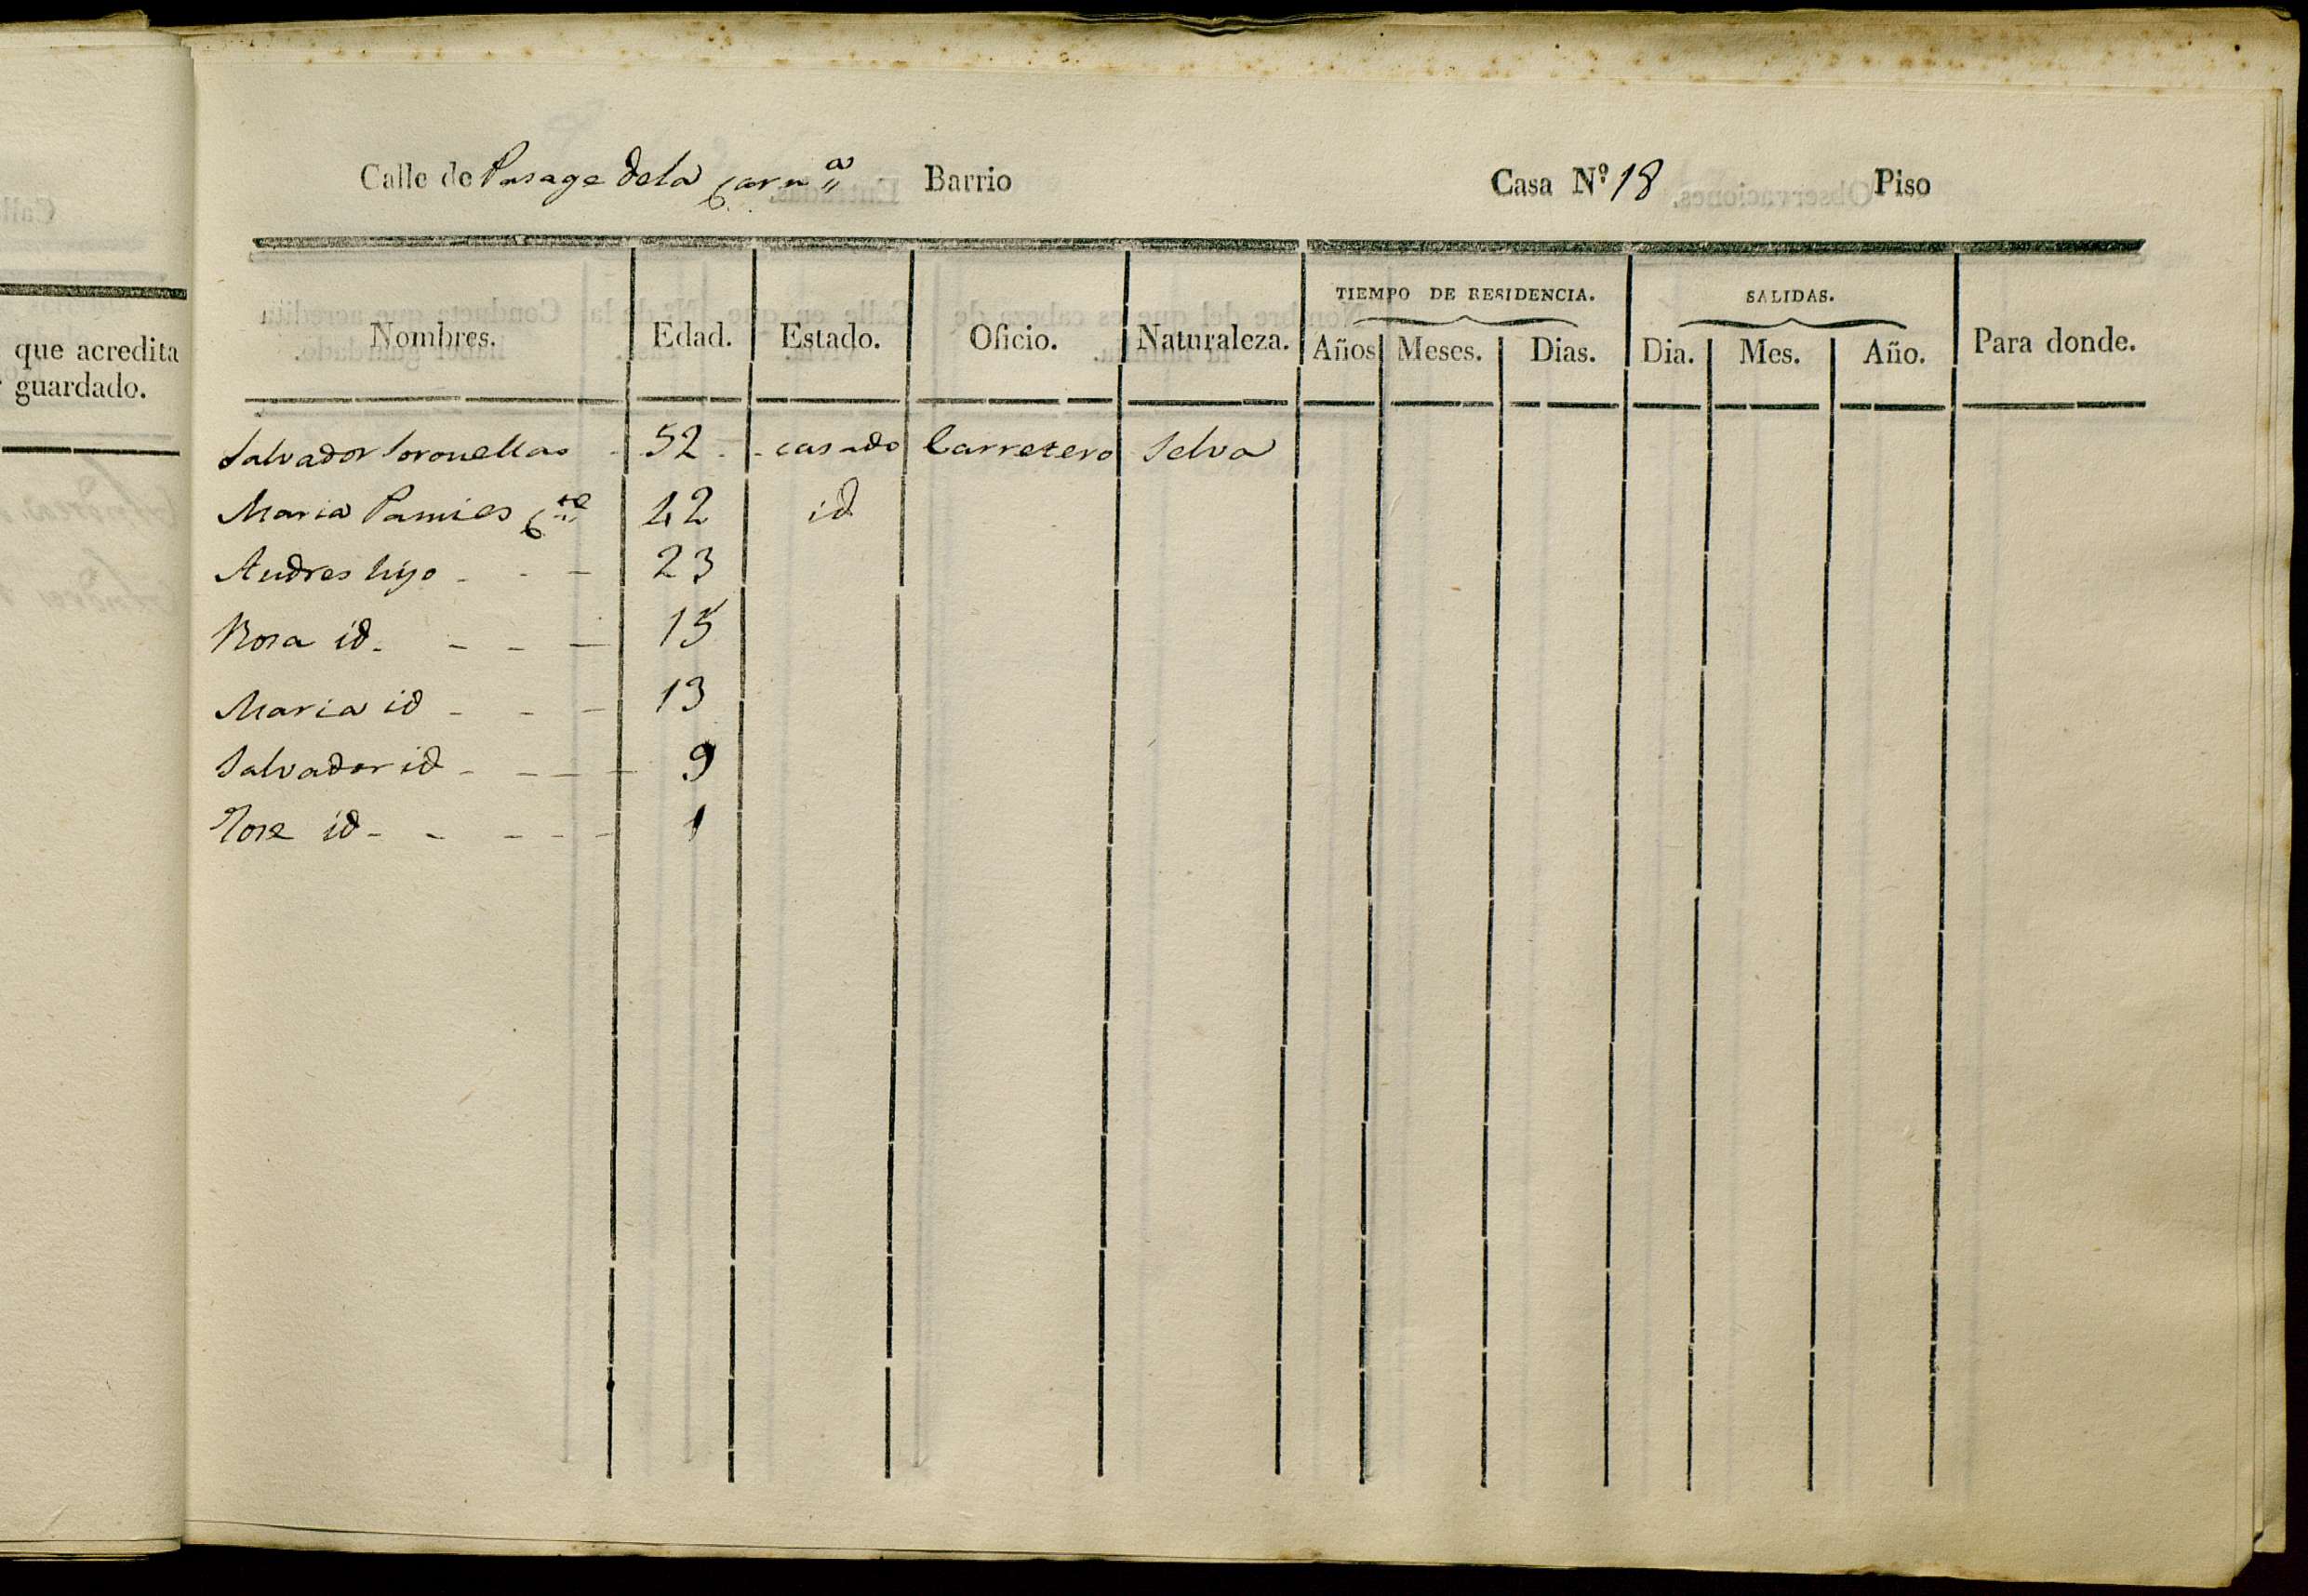 que acredita
guardado.
Calle de Pasage dela Carn.ª Barrio Casa Nº 18 Piso
Nombres. Edad. Estado. Oficio. Naturaleza. TIEMPO DE RESIDENCIA. SALIDAS. Para donde.
Años Meses. Dias. Dia. Mes. Año.
Salvador Soronellas 52 casado Carretero Selva
Maria Pamies C.te 42 id
Andres hijo 23
Rosa id 15
Maria id 13
Salvador id 9
Jose id 1